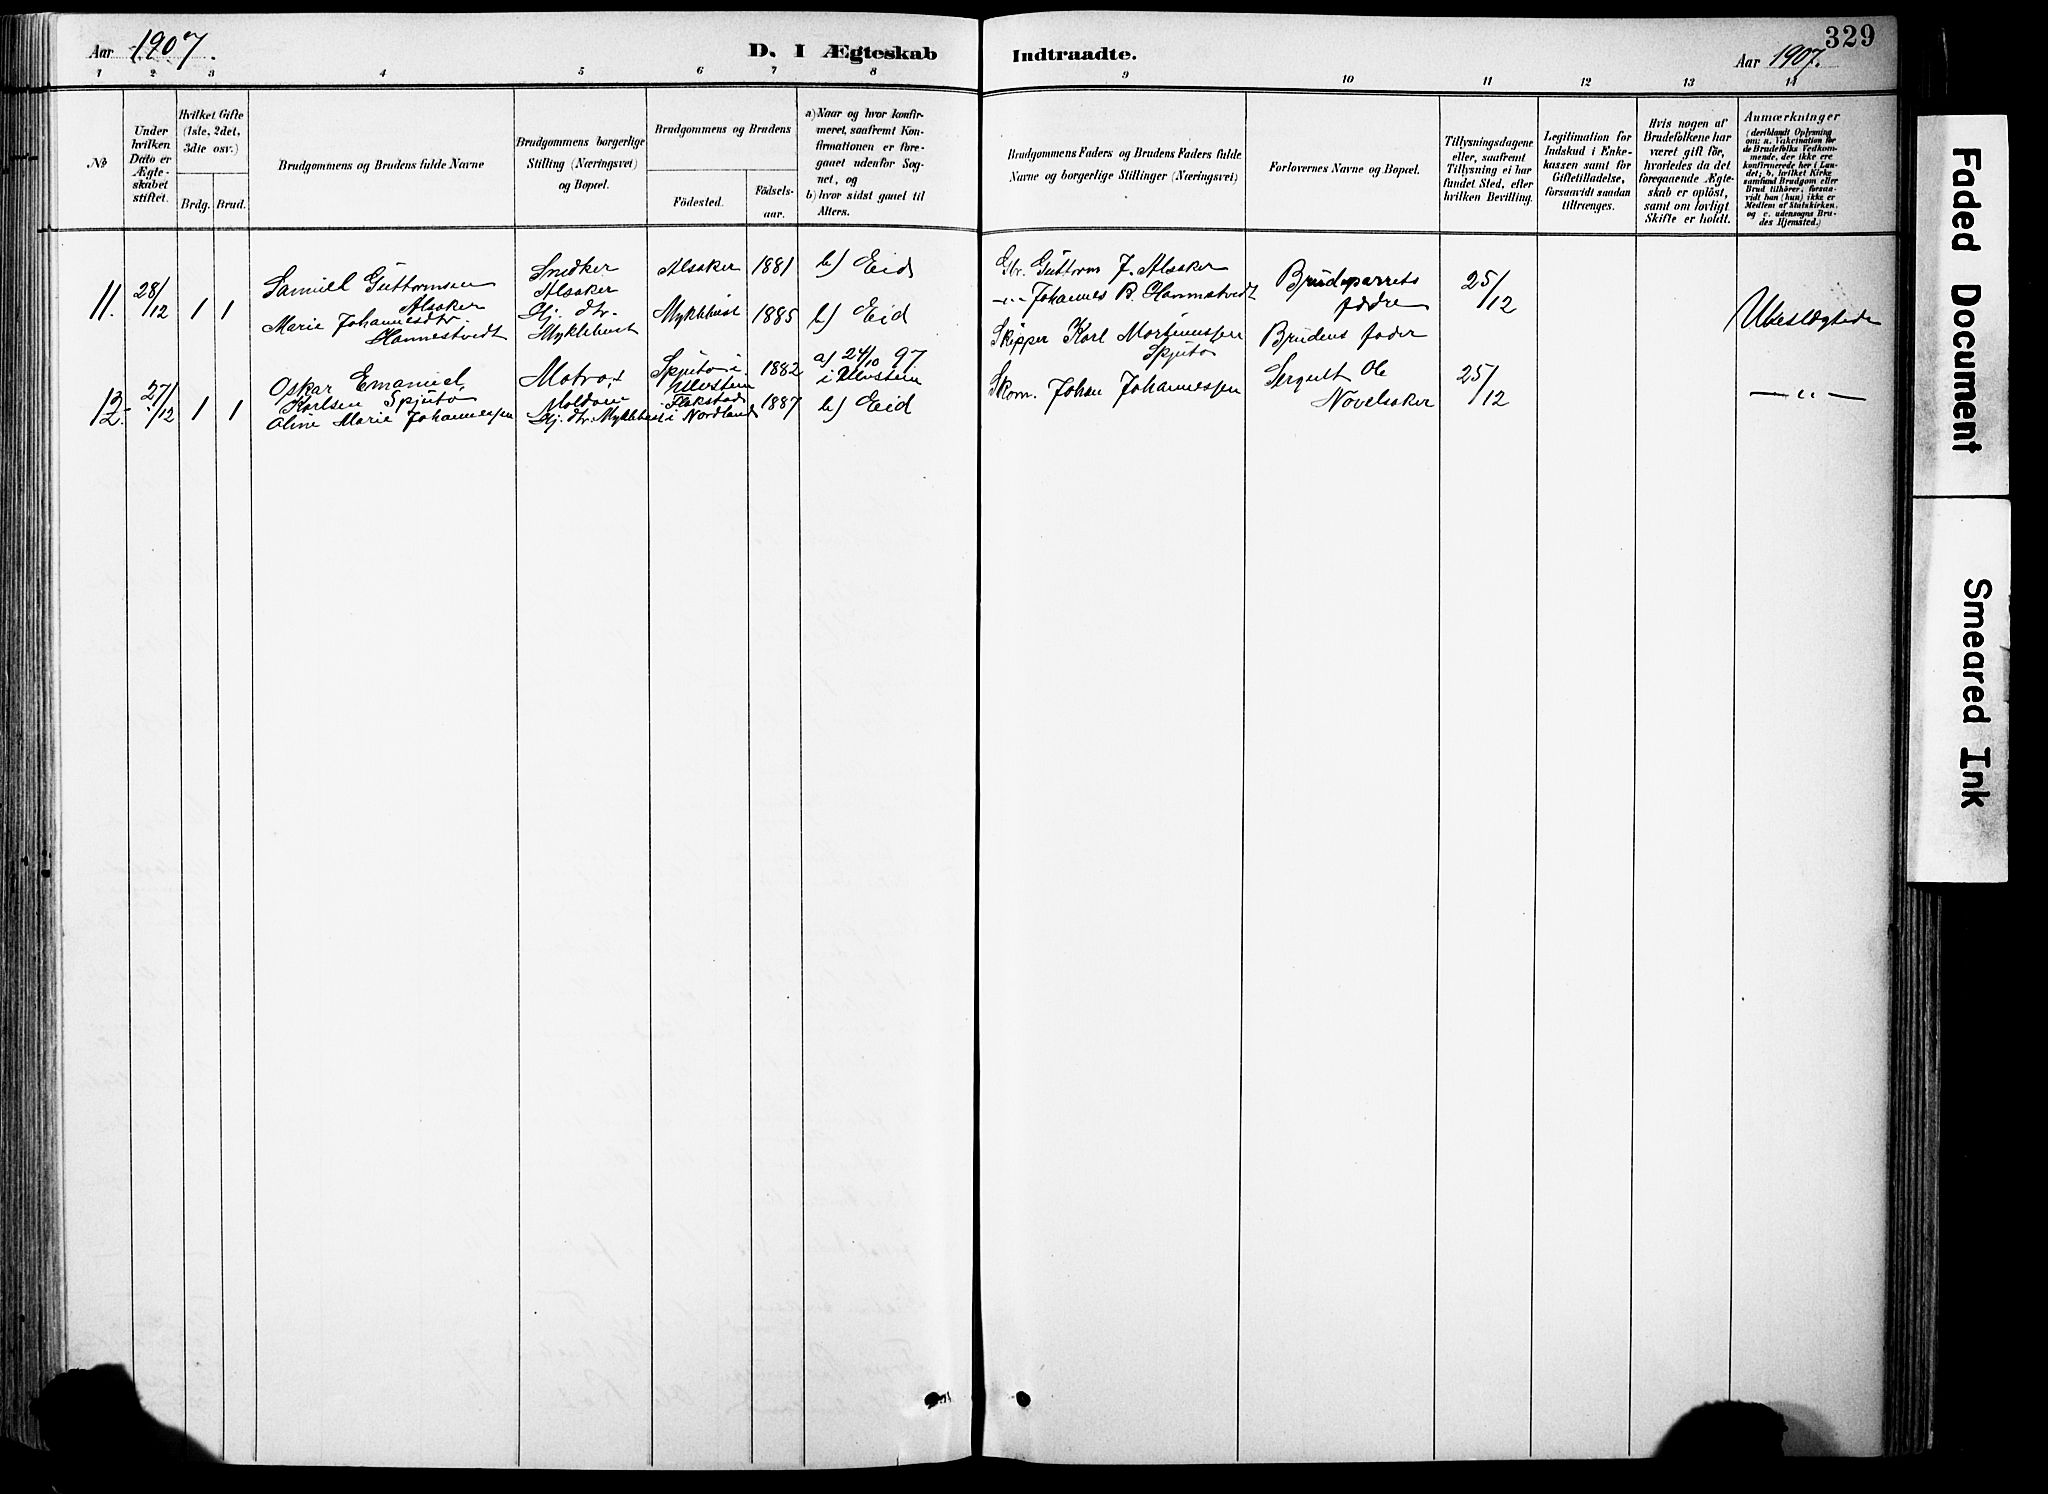 Aar 1907.
D. I Ægteskab
Indtraadte.
Aar 1907.
329
1 2 3 4 5 6 7 8 9 10 11 12 13 14
No
Under hvilken Dato er Ægteskabet stiftet.
Hvilket Gifte (1ste, 2det, 3die osv.)
Brdg. Brud.
Brudgommens og Brudens fulde Navne
Brudgommens borgerlige Stilling (Næringsvei) og Bopæl.
Brudgommens og Brudens
Födested.
Födselsaar.
a) Naar og hvor konfirmeret, saafremt Konfirmationen er foregaaet udenfor Sognet, og
b) hvor sidst gaaet til Alters.
Brudgommens Faders og Brudens Faders fulde Navne og borgerlige Stillinger (Næringsvei)
Forlovernes Navne og Bopæl.
Tillysningsdagene eller, saafremt Tillysning ei har fundet Sted, efter hvilken Bevilling.
Legitimation for Indskud i Enkekassen samt for Giftetilladelse, forsaavidt saadan tiltrænges.
Hvis nogen af Brudefolkene har været gift för, hvorledes da det foregaaende Ægteskab er oplöst, samt om lovligt Skifte er holdt.
Anmærkninger
(deriblandt Oplysning om: a. Vakcination for de Brudefolks Vedkommende, der ikke ere konfirmerede her i Landet; b. hvilket Kirkesamfund Brudgom eller Brud tilhörer, forsaavidt han (hun) ikke er Medlem af Statskirken, og c. udensogns Brudes Hjemsted.)
11. 28/12 1 1
Samuel Guttormsen Alsaker
Marie Johannesdtr. Hannestvedt
Snedker Alsaker
Gj. dtr. Myklebust
Alsaker 1881 b) Eid
Myklebust 1885 b) Eid
Gbr. Guttorm J. Alsaker
-"- Johannes B. Hannestvedt
Brudeparrets fædre
25/12
Ubeslægtede
12. 27/12 1 1
Oskar Emanuel Karlsen Spjutø
Oline Marie Johannessen
Matros Moldøen
Gj. dtr. Myklebust
Spjutø i Utvstein 1882 a) 24/10 97 i Utvstein
Flakstad i Nordland 1887 b) Eid
Skipper Karl Martinussen Spjutø
Skom. Johan Johannessen
Brudens fader
Sergeant Ole Nøvelsaker
25/12
-"-
Faded Document
Smeared Ink